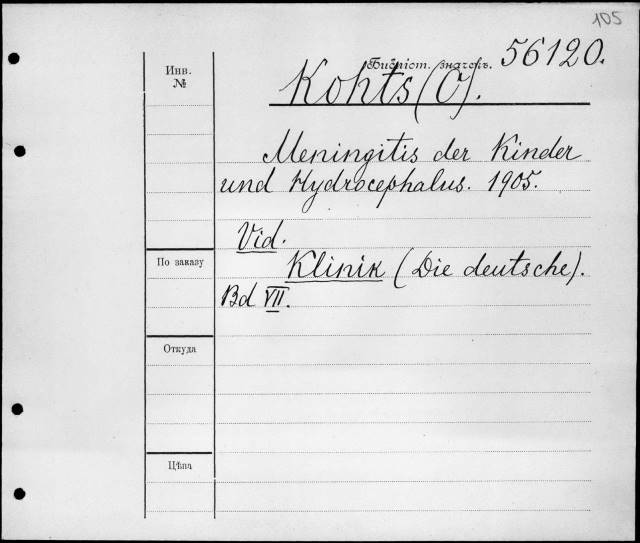 105
Библіот. значекъ. 56120.
Инв.
№
Kohts (O).
Meningitis der Kinder
und Hydrocephalus. 1905.
Vid.
По заказу
Klinik (Die deutsche).
Bd VII.
Откуда
Цѣна